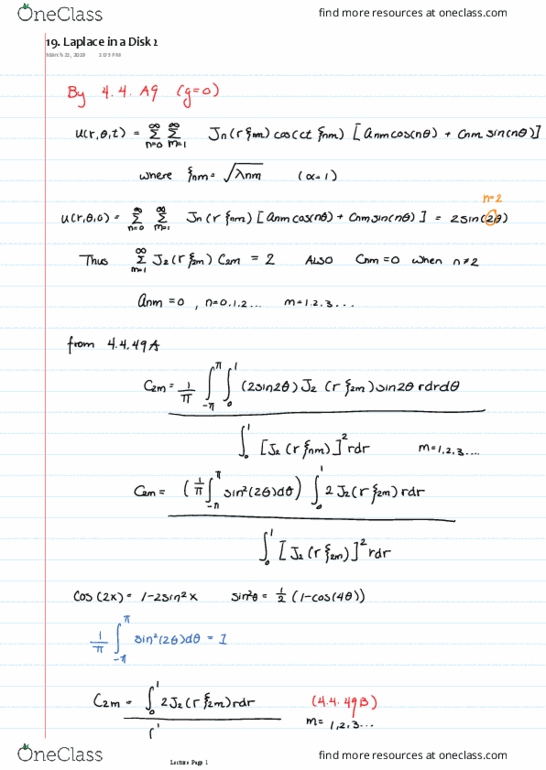 OneClass
find more resources at oneclass.com
19. Laplace in a Disk 2
March 22, 2019 2:05 PM
By 4.4.A9 (g=0)
u(r,θ,t) = ∞Σn=0 ∞Σm=1 Jn(r ξnm) cos(ct ξnm) [anm cos(nθ) + Cnm sin(nθ)]
where ξnm = √λnm (α=1)
n=2
u(r,θ,0) = ∞Σn=0 ∞Σm=1 Jn(r ξnm) [anm cos(nθ) + Cnm sin(nθ)] = 2sin(2θ)
Thus ∞Σm=1 J2(r ξ2m) C2m = 2 ALSO Cnm = 0 when n≠2
anm = 0 , n=0,1,2... m=1,2,3...
from 4.4.49A
C2m = 1/π ∫-π^π ∫0^1 (2sin2θ) J2 (r ξ2m) sin2θ rdrdθ
∫0^1 [J2 (r ξnm)]² rdr m=1,2,3....
C2m = (1/π ∫-π^π sin²(2θ)dθ) ∫0^1 2J2(r ξ2m) rdr
∫0^1 [J2 (r ξ2m)]² rdr
cos(2x) = 1-2sin²x sin²θ = 1/2 (1-cos(4θ))
1/π ∫-π^π sin²(2θ)dθ = 1
C2m = ∫0^1 2J2(r ξ2m) rdr (4.4.49B)
m= 1,2,3...
Lecture Page 1
OneClass
find more resources at oneclass.com